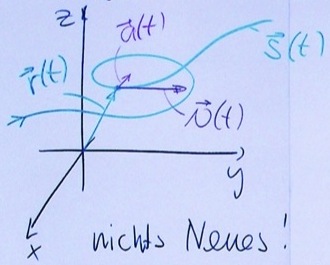 z
a⃗(t)
s⃗(t)
r⃗(t)
v⃗(t)
y
x
nichts Neues!